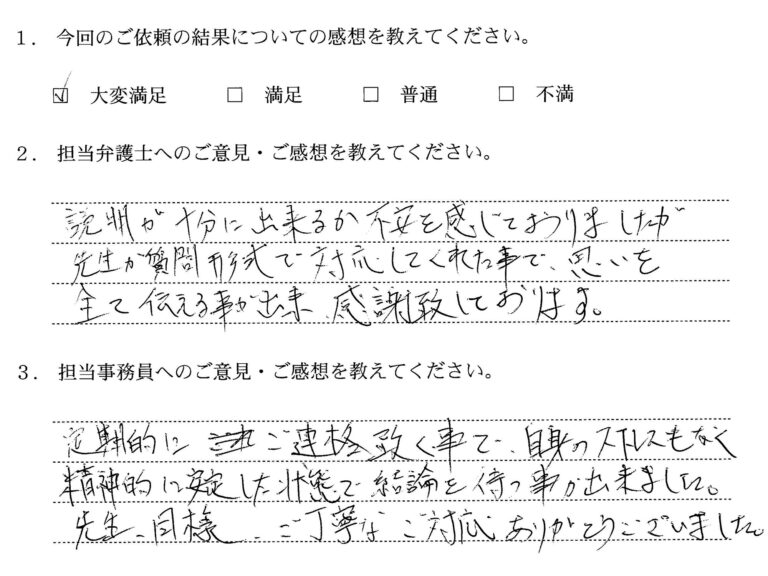 1. 今回のご依頼の結果についての感想を教えてください。
☑ 大変満足 □ 満足 □ 普通 □ 不満
2. 担当弁護士へのご意見・ご感想を教えてください。
説明が十分に出来るか不安を感じておりましたが
先生が質問形式で対応してくれた事で、思いを
全て伝える事が出来、感謝致しております。
3. 担当事務員へのご意見・ご感想を教えてください。
定期的にご連絡致く事で、自身のストレスもなく
精神的に安定した状態で結論を待つ事が出来ました。
先生、皆様、ご丁寧なご対応ありがとうございました。